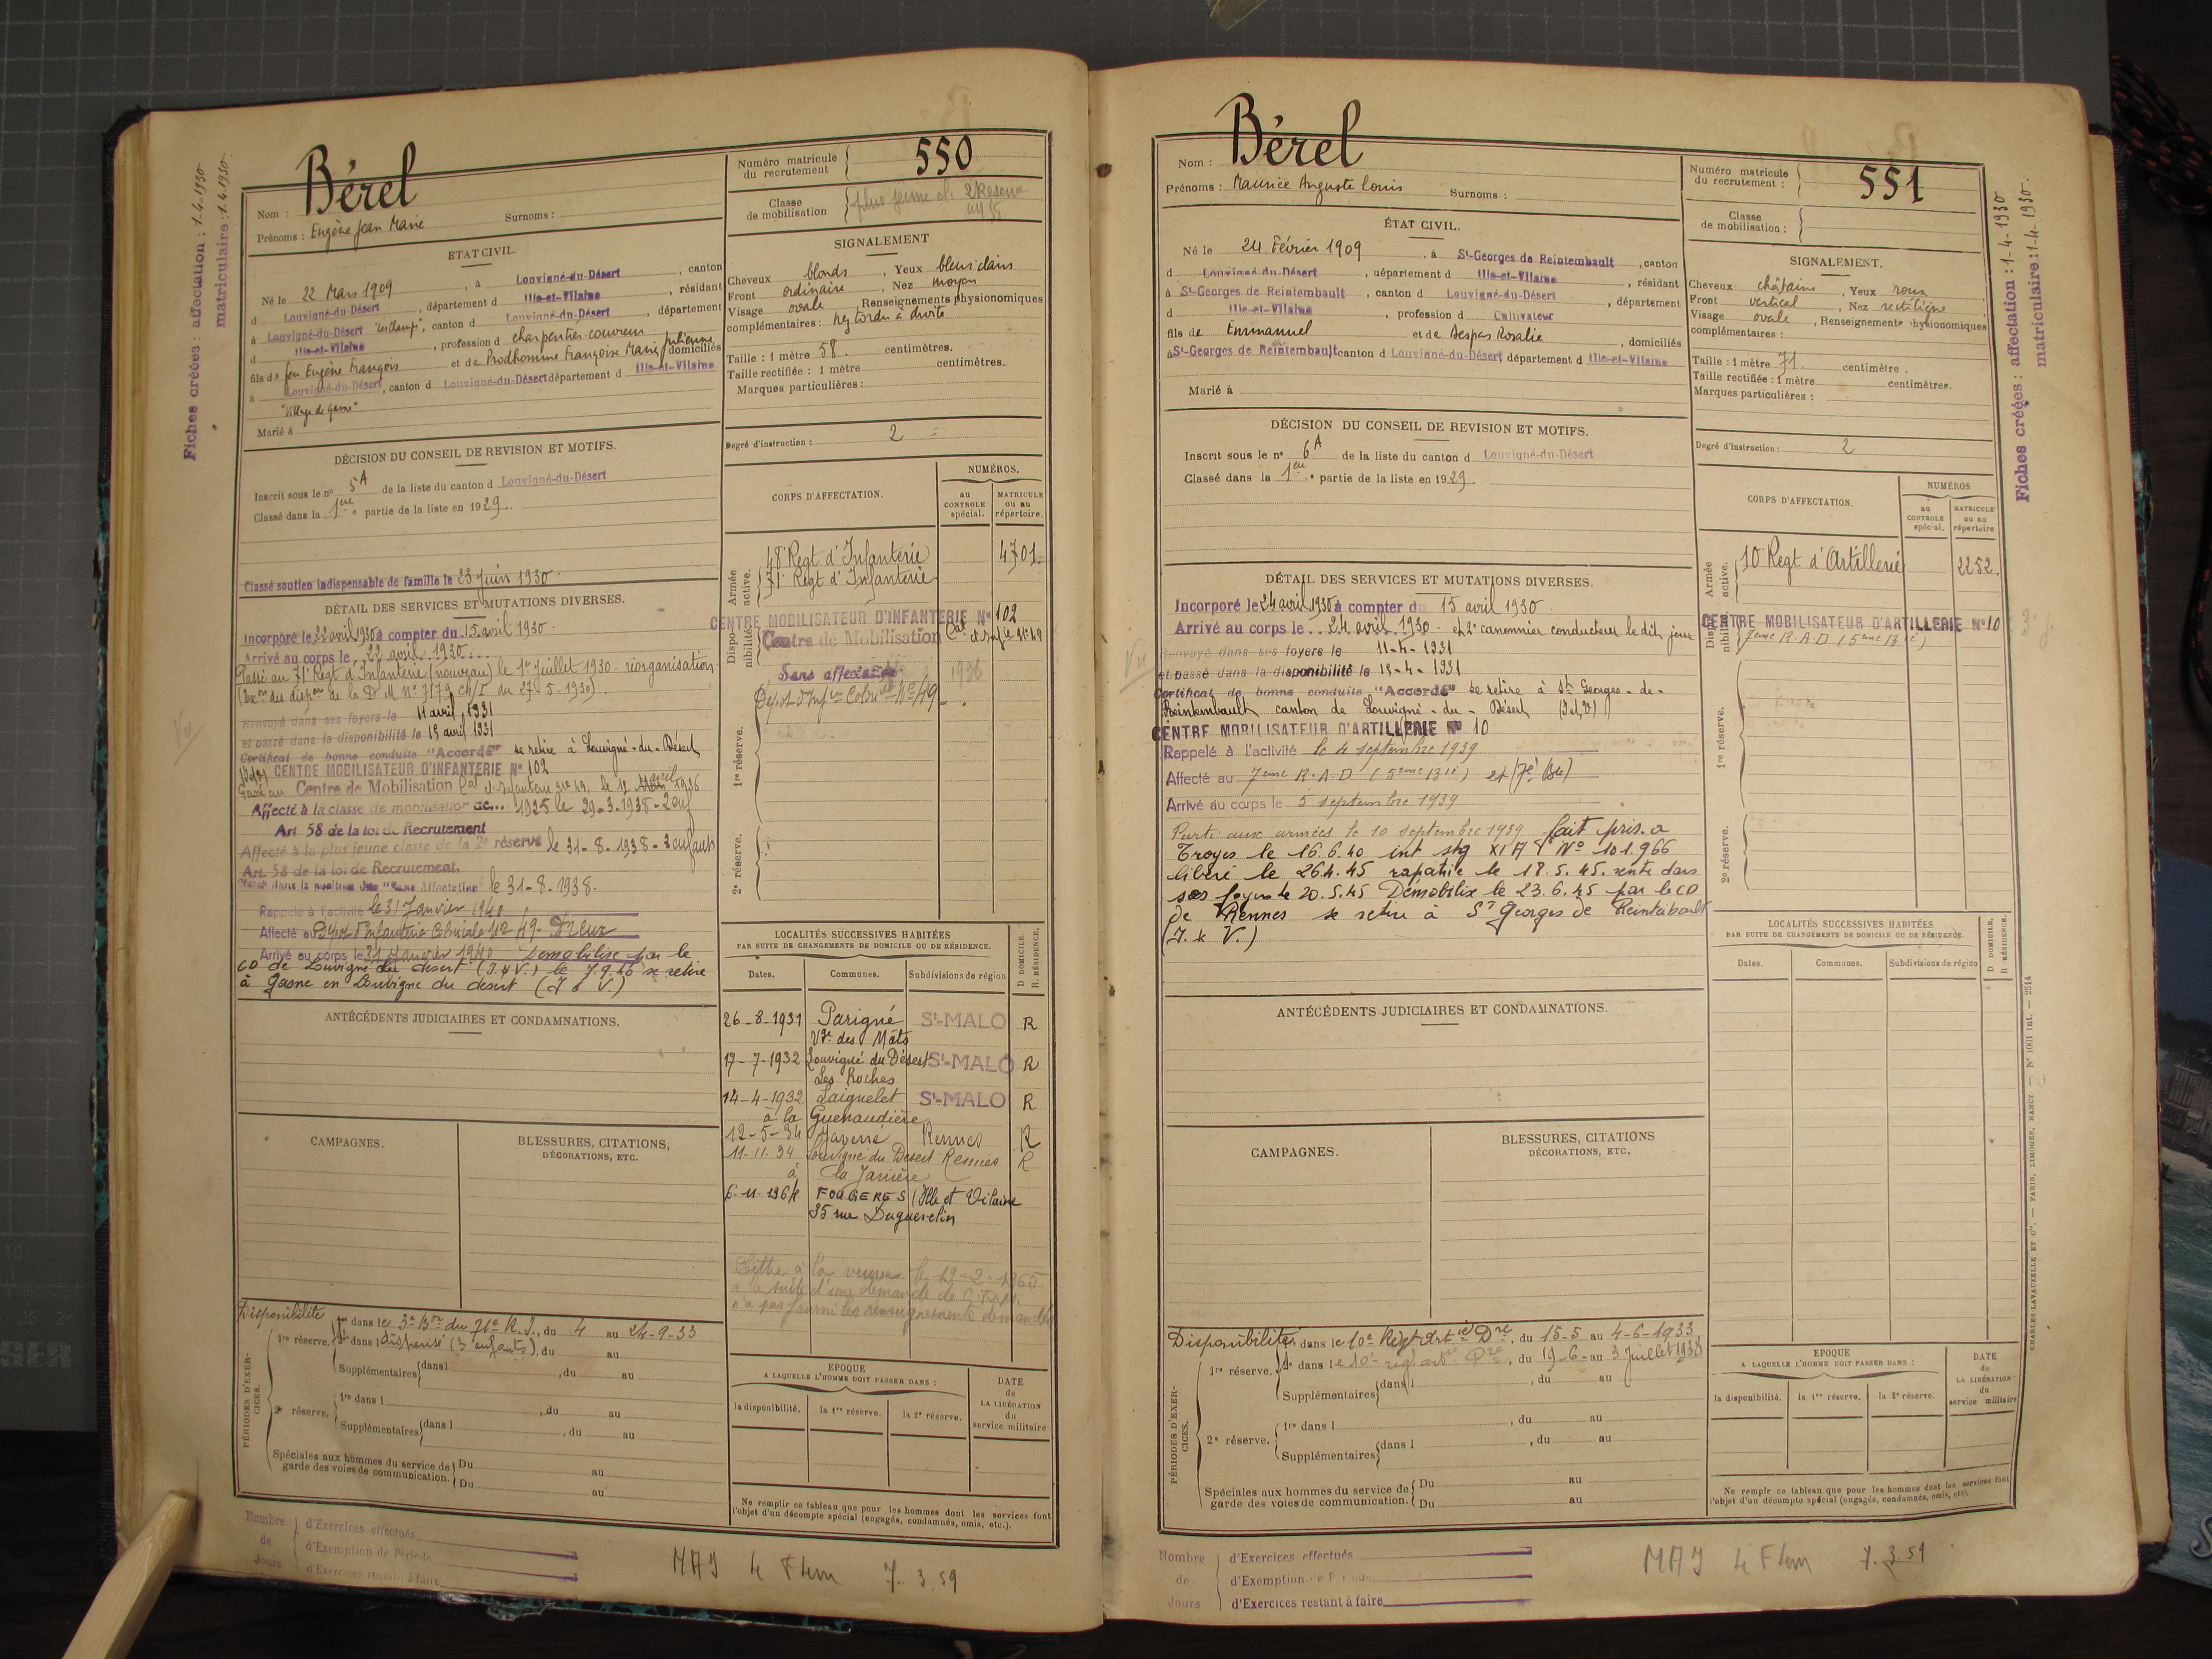 Fiches créées : affectation : 1.4.1930
matriculaire : 1.4.1930.
Nom : Bérel
Prénoms : Eugène Jean Marie Surnoms :
ETAT CIVIL.
Né le 22 Mars 1909, à Louvigné-du-Désert, canton
d Louvigné-du-Désert, département d Ille-et-Vilaine, résidant
à Louvigné-du-Désert, canton d Louvigné-du-Désert, département
d Ille-et-Vilaine, profession d charpentier-couvreur
fils de feu Eugène François et de Prodhomme Françoise Marie Julienne domiciliés
à Louvigné-du-Désert, canton d Louvigné-du-Désert département d Ille-et-Vilaine
"Village de Gasne"
Marié à
DÉCISION DU CONSEIL DE REVISION ET MOTIFS.
Inscrit sous le n° 5A de la liste du canton d Louvigné-du-Désert
Classé dans la 1ère partie de la liste en 1929.
Classé soutien indispensable de famille le 23 Juin 1930.
DÉTAIL DES SERVICES ET MUTATIONS DIVERSES.
Incorporé le 22 avril 1930 à compter du 15 avril 1930.
Arrivé au corps le 22 avril 1930.
Passé au 71e Regt d'Infanterie (nouveau) le 1er Juillet 1930 - réorganisation
du 27.5.1930).
Renvoyé dans ses foyers le 11 avril 1931
et passé dans la disponibilité le 15 avril 1931
Certificat de bonne conduite "Accordé" se retire à Louvigné-du-Désert
CENTRE MOBILISATEUR D'INFANTERIE N° 102
Passé au Centre de Mobilisation Cal d'Infanterie n° 49, le 12 avril 1936
Affecté à la classe de mobilisation de... 1925 le 29-3-1938 - 2 enf
Art 58 de la loi de Recrutement
Affecté à la plus jeune classe de la 2e réserve le 31-8-1938 - 3 enfants
Art 58 de la loi de Recrutement.
le 31-8-1938.
Rappelé à l'activité le 31 Janvier 1940
Affecté au Dépôt d'Infanterie Coloniale N° 49 - Dreux
Arrivé au corps le 31 Janvier 1940 Démobilisé par le
CD de Louvigné du désert (I.&V.) le 7.9.40 se retire
à Gasne en Louvigné du désert (I & V.)
ANTÉCÉDENTS JUDICIAIRES ET CONDAMNATIONS.
CAMPAGNES.
BLESSURES, CITATIONS,
DÉCORATIONS, ETC.
PÉRIODES D'EXERCICES.
Disponibilité dans le 3e Bon du 71e R.I., du 4 au 24-9-33
1re réserve. 2e dans l dispensé (2 enfants), du au
Supplémentaires dans l , du au
2e réserve. 1re dans l , du au
Supplémentaires dans l , du au
Spéciales aux hommes du service de garde des voies de communication. Du au
Du au
Nombre de Jours
d'Exercices effectués
d'Exemption de Période
d'Exercices restant à faire
Numéro matricule du recrutement 550
Classe de mobilisation plus jeune cl. 2 Réserve
SIGNALEMENT
Cheveux blonds, Yeux bleus clairs
Front ordinaire, Nez moyen
Visage ovale, Renseignements physionomiques
complémentaires : nez tordu à droite
Taille : 1 mètre 58. centimètres.
Taille rectifiée : 1 mètre centimètres.
Marques particulières :
Degré d'instruction : 2
CORPS D'AFFECTATION.
NUMÉROS.
au CONTROLE spécial.
MATRICULE ou au répertoire.
Armée active.
48e Regt d'Infanterie 4701
71e Regt d'Infanterie
Disponibilité.
CENTRE MOBILISATEUR D'INFANTERIE N° 102
Centre de Mobilisation Cal d'Infie N° 49
Sans affectation 1936
Dépôt d'Infie Coloniale N° 49
1re réserve.
2e réserve.
LOCALITÉS SUCCESSIVES HABITÉES
PAR SUITE DE CHANGEMENTS DE DOMICILE OU DE RÉSIDENCE.
D. DOMICILE. R. RÉSIDENCE.
Dates. Communes. Subdivisions de région
26-8-1931 Parigné St-MALO R
Vge des Mâts
17-7-1932 Louvigné du Désert St-MALO R
Les Roches
14-4-1932 Laignelet St-MALO R
à la Guenaudière
12-5-34 Javené Rennes R
11-11-34 Louvigné du Désert Rennes R
à la Janière
6-11-1964 FOUGERES (Ille et Vilaine
35 rue Duguesclin
Lettre à la veuve le 19-2-1965
à la suite d'une demande de
n'a pas fourni les renseignements demandés
EPOQUE
A LAQUELLE L'HOMME DOIT PASSER DANS :
la disponibilité. la 1re réserve. la 2e réserve.
DATE de LA LIBÉRATION du service militaire
Ne remplir ce tableau que pour les hommes dont les services font
l'objet d'un décompte spécial (engagés, condamnés, omis, etc.).
MAJ 7.3.59
Nom : Bérel
Prénoms : Maurice Auguste Louis Surnoms :
ÉTAT CIVIL.
Né le 24 Février 1909, à St-Georges de Reintembault, canton
d Louvigné-du-Désert, département d Ille-et-Vilaine, résidant
à St-Georges de Reintembault, canton d Louvigné-du-Désert, département
d Ille-et-Vilaine, profession d Cultivateur
fils de Emmanuel et de Despas Rosalie, domiciliés
à St-Georges de Reintembault canton d Louvigné-du-Désert département d Ille-et-Vilaine
Marié à
DÉCISION DU CONSEIL DE REVISION ET MOTIFS.
Inscrit sous le n° 6A de la liste du canton d Louvigné-du-Désert
Classé dans la 1ère partie de la liste en 1929
DÉTAIL DES SERVICES ET MUTATIONS DIVERSES.
Incorporé le 24 avril 1930 à compter du 15 avril 1930.
Arrivé au corps le 24 avril 1930 et 2e canonnier conducteur le dit jour
Renvoyé dans ses foyers le 11-4-1931
et passé dans la disponibilité le 15-4-1931
Certificat de bonne conduite "Accordé" se retire à St Georges-de-
Reintembault canton de Louvigné-du-Désert (I et V)
CENTRE MOBILISATEUR D'ARTILLERIE N° 10
Rappelé à l'activité le 4 septembre 1939
Affecté au 7ème R.A.D (5ème Bie)
Arrivé au corps le 5 septembre 1939
Parti aux armées le 10 septembre 1939 fait pris. à
Troyes le 16.6.40 int stg XI A N° 101.966
libéré le 26.4.45 rapatrié le 18.5.45. rentre dans
ses foyers le 20.5.45 Démobilisé le 23.6.45 par le CD
de Rennes se retire à St Georges de Reintembault
(I. & V.)
ANTÉCÉDENTS JUDICIAIRES ET CONDAMNATIONS.
CAMPAGNES.
BLESSURES, CITATIONS
DÉCORATIONS, ETC.
PÉRIODES D'EXERCICES.
Disponibilité dans le 10e Regt Artie Dre, du 15-5 au 4-6-1933
1re réserve. dans le 10e rég. art. Dre, du 19-6 au 3 Juillet 1938
Supplémentaires dans l , du au
2e réserve. 1re dans l , du au
Supplémentaires dans l , du au
Spéciales aux hommes du service de garde des voies de communication. Du au
Du au
Nombre de Jours
d'Exercices effectués
d'Exemption de Période
d'Exercices restant à faire
Numéro matricule du recrutement : 551
Classe de mobilisation :
SIGNALEMENT.
Cheveux châtains, Yeux roux
Front vertical, Nez rectiligne
Visage ovale, Renseignements physionomiques
complémentaires :
Taille : 1 mètre 71. centimètre.
Taille rectifiée : 1 mètre centimètres.
Marques particulières :
Degré d'instruction : 2
CORPS D'AFFECTATION.
NUMÉROS
au CONTROLE spécial.
MATRICULE ou au répertoire
Armée active.
10e Regt d'Artillerie 2252.
Disponibilité.
CENTRE MOBILISATEUR D'ARTILLERIE N° 10
7ème R.A.D (5ème Bie)
1re réserve.
2e réserve.
LOCALITÉS SUCCESSIVES HABITÉES
PAR SUITE DE CHANGEMENTS DE DOMICILE OU DE RÉSIDENCE.
D DOMICILE. R RÉSIDENCE.
Dates. Communes. Subdivisions de région
EPOQUE
A LAQUELLE L'HOMME DOIT PASSER DANS :
la disponibilité. la 1re réserve. la 2e réserve.
DATE de LA LIBÉRATION du service militaire
Ne remplir ce tableau que pour les hommes dont les services font
l'objet d'un décompte spécial (engagés, condamnés, omis, etc).
MAJ 7.3.59
Fiches créées : affectation : 1-4-1930
matriculaire : 1-4-1930.
CHARLES-LAVAUZELLE ET Cie. — PARIS, LIMOGES, NANCY — N° 1001 Int. — 2514